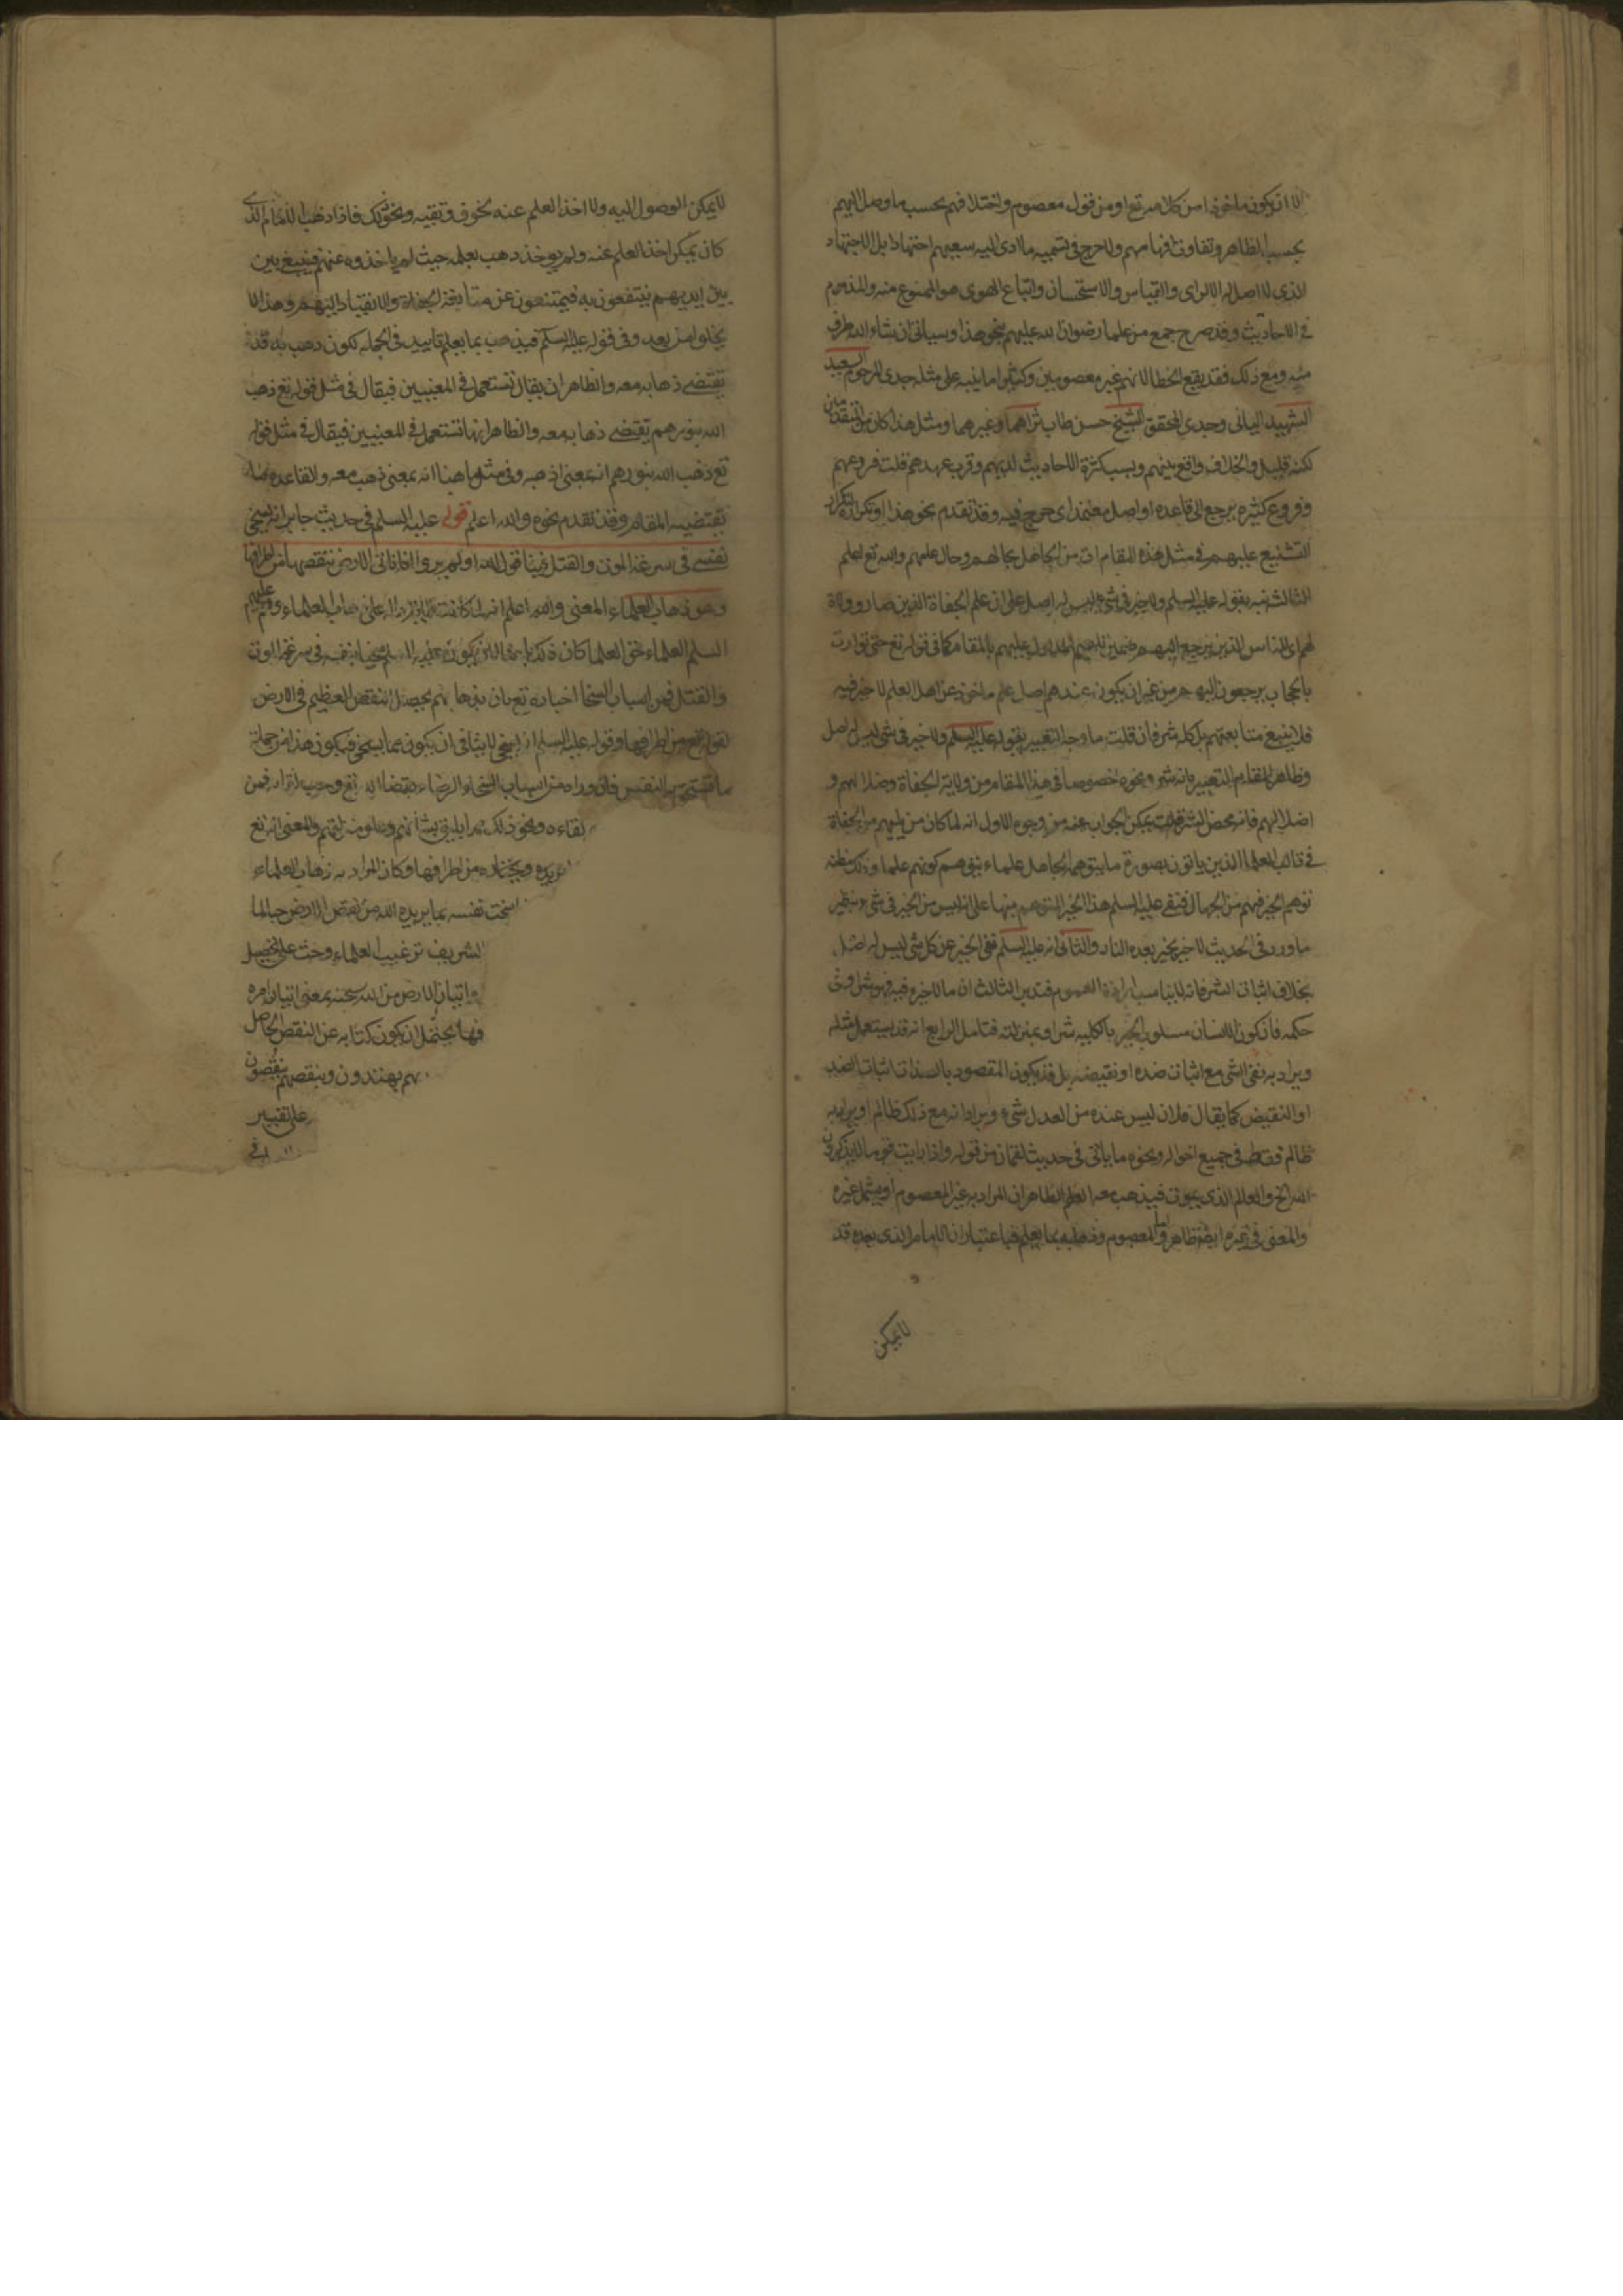 الا ان يكون ماخوذا من كلامه تع او من قول معصوم واختلافهم بحسب ما وصل اليهم
بحسب الظاهر وتفاوت افهامهم ولا حرج في تسميه ما ادى اليه سعيهم اجتهادا بل الاجتهاد
الذي لا اصل له الا الراى والقياس والاستحسان واتباع الهوى هو الممنوع منه والمذموم
في الاحاديث وقد صرح جمع من علمائنا رضوان الله عليهم بنحو هذا وسياتى ان شاء الله طرف
منه ومع ذلك فقد يقع الخطا لانهم غير معصومين وكثيرا ما ينبه على مثله جدى المرحوم السعيد
الشهيد الثانى وجدى المحقق الشيخ حسن طاب ثراهما وغيرهما ومثل هذا كان من المتقدمين
لكنه قليل والخلاف واقع بينهم وبسبب كثرة الاحاديث لديهم وقرب عهدهم قلت فروعهم
وفروع كثيره يرجع الى قاعده او اصل معتمد اى حرج فيه وقد تقدم نحو هذا وتكراره لتكرار
التشنيع عليهم في مثل هذه المقامات من الجاهل بحالهم وحال علمهم والله تع اعلم
الثالث نبه بقوله عليه السلم ولا خير في شى ليس له اصل على ان علم الجفاة الذين صاروا ولاة
لهم اى الناس الذين يرجع اليهم ضمير المدلول عليهم بالمقام كما في قوله تع حتى توارت
بالحجاب يرجعون اليهم من غير ان يكون عندهم اصل علم ماخوذ عن اهل العلم لا خير فيه
فلا ينبغ متابعتهم بل كله شر فان قلت ما وجه التعبير بقوله عليه السلم ولا خير في شى ليس له اصل
وظاهر المقام التعبير بانه شر ونحوه خصوصا في هذا المقام من ولاية الجفاة وضلالهم و
اضلالهم فانه محض الشر قلت يمكن الجواب عنه من وجوه الاول انه لما كان من يليهم من الجفاة
في قالب العلما الذين ياتون بصورة ما يتوهمه الجاهل علماء بتوهم كونهم علما وذلك مظنه
توهم الخير فيهم من الجهال فنفى عليه السلم هذا الخير المتوهم منبها على انه ليس من الخير في شى ونظير
ما ورد في الحديث لا خير بخير بعده النار والثانى انه عليه السلم نفى الخير عن كل شى ليس له اصل
بخلاف اثبات الشر فانه لا يناسب ارادة العموم فتدبر الثالث ان ما لا خير فيه فهو شر او في
حكمه فان كون الانسان مسلوب الخير بالكليه شر او بمنزلته فتامل الرابع انه قد يستعمل مثله
ويراد به نفى الشى مع اثبات ضده او نقيضه بل قد يكون المقصود بالذات اثبات الضد
او النقيض كما يقال فلان ليس عنده من العدل شىء ويراد انه مع ذلك ظالم او يراد به
ظالم فقط في جميع احواله ونحوه ما ياتى في حديث لقمان من قوله واذا رايت قوما لا يذكرون
الله الخ والعالم الذى يموت فيذهب معه العلم الظاهر ان المراد به غير المعصوم او يشمل غيره
والمعنى في غيره ايضا ظاهر واما المعصوم وذهابه بما يعلم فباعتبار ان الامام الذى بعده قد
لا يمكن
لا يمكن الوصول اليه ولا اخذ العلم عنه لخوف وتقيه ونحو ذلك فاذا ذهب الامام الذى
كان يمكن اخذ العلم عنه ولم يوخذ ذهب بعلمه حيث لم ياخذوه عنهم فيبقى بين
بين ايديهم ينتفعون به فيمتنعون عن متابعة الجفاة والانقياد اليهم وهذا لا
يخلوا من بعد وفي قوله عليه السلم فيذهب بما يعلم تاييد في الجمله لكون ذهب به قد
تقتضى ذهابه معه والظاهر ان يقال تستعمل في المعنيين فيقال في مثل قوله تع ذهب
الله بنورهم يقتضى ذهابه معه والظاهر انها تستعمل في المعنيين فيقال في مثل قوله
تع ذهب الله بنورهم انه بمعنى اذهبه وفي مثل ما هنا انه بمعنى ذهب معه والقاعده
تقتضيه المقام وقد تقدم نحوه والله اعلم قوله عليه السلم في حديث جابر انه يسخى
نفسى في سرعة الموت والقتل فينا قول الله اولم يروا انا ناتى الارض ننقصها من اطرافها
وهو ذهاب العلماء المعنى والله اعلم انه لما كانت الاية دالة على ذهاب العلماء وهم عليهم
السلم العلماء حق العلما كان ذلك باعثا لان يكون عليه السلم سخيا بنفسه في سرعة الموت
والقتل فمن اسباب السخا اخباره تع بان بذهابهم يحصل النقص العظيم في الارض
لقوله تع من اطرافها وقوله عليه السلم انه يسخى لا ينافى ان يكون مما يسخى فيكون هذا من جملة
ما تسخى به النفس فان وراه من اسباب السخاء الرضاء بقضاء الله تع وحب لقاء الله فمن
لقاءه ونحو ذلك مما يليق بشانهم وعلو مرتبتهم والمعنى انه تع
يريده ويختاره من اطرافها وكان المراد به ذهاب العلماء
سخت نفسه بما يريده الله من نقص الارض
الشريف ترغيب العلماء وحث على تحصيل
واتيان الارض من الله سبحنه بمعنى اتيان امره
فهذا يحتمل ان يكون كنايه عن النقص الحاصل
بهم يهتدون وينقصهم ينقصون
على تفسير
في